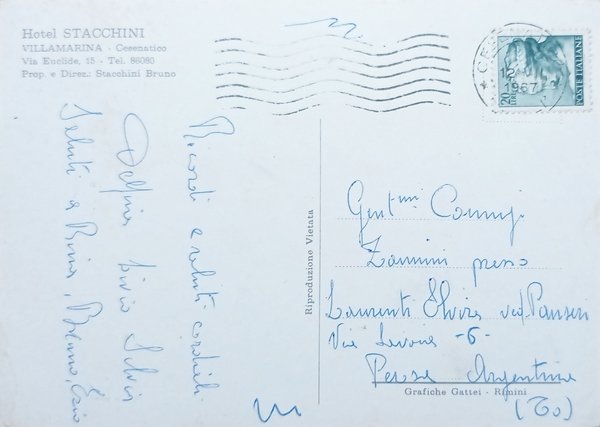 Hotel STACCHINI
VILLAMARINA - Cesenatico
Via Euclide, 15 - Tel. 86080
Prop. e Direz.: Stacchini Bruno
12
1967
20
LIRE
POSTE ITALIANE
Ricordi e saluti cordiali
Delfina Livio Silvia
Saluti a Rina, Bruno, Ezio
Riproduzione Vietata
Gent.mi Coniugi
Zannini presso
Laurenti Elvira ved.
Via Savona -6-
Perosa Argentina
(TO)
Grafiche Gattei - Rimini